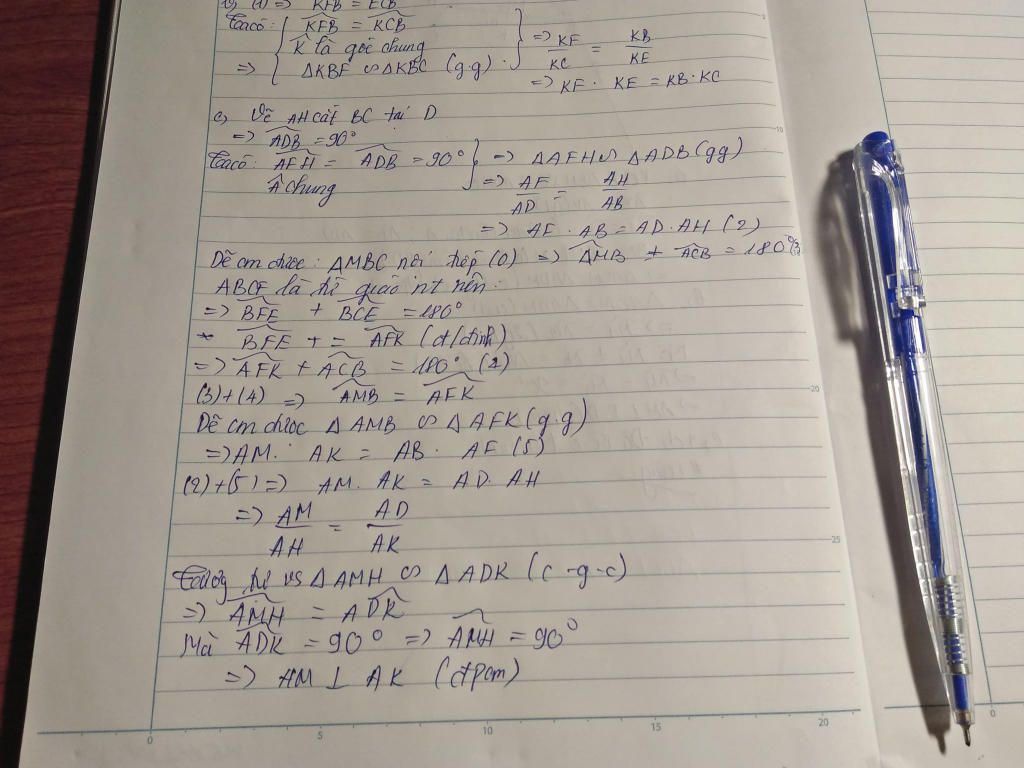 (1) => KFB = ECB
Ta có: { KFB = KCB
K là góc chung } => KF/KC = KB/KE
=> ΔKBF ∽ ΔKBC (g.g)
=> KF . KE = KB . KC
c, Vẽ AH cắt BC tại D
=> ADB = 90°
Ta có: AFH = ADB = 90° } => ΔAFH ∽ ΔADB (gg)
Â chung => AF/AD = AH/AB
=> AF . AB = AD . AH (2)
Dễ cm được: ΔMBC nội tiếp (O) => AMB + ACB = 180° (3)
ABCF là tứ giác nt nên
=> BFE + BCE = 180°
BFE + = AFK (đ/đỉnh)
=> AFK + ACB = 180° (4)
(3)+(4) => AMB = AFK
Dễ cm được ΔAMB ∽ ΔAFK (g.g)
=> AM . AK = AB . AF (5)
(2)+(5) => AM . AK = AD . AH
=> AM/AH = AD/AK
Tương tự vs ΔAMH ∽ ΔADK (c-g-c)
=> AMH = ADK
Mà ADK = 90° => AMH = 90°
=> AM ⊥ AK (đpcm)
0 5 10 15 20
10
20
25
0